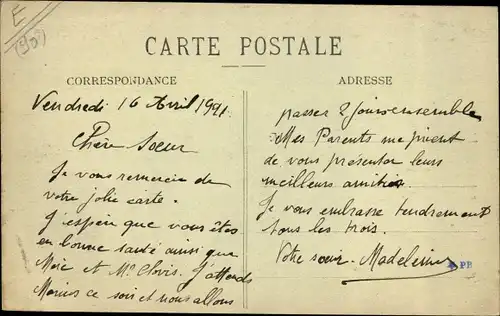 E
CARTE POSTALE
CORRESPONDANCE
ADRESSE
Vendredi 16 Avril 1921.
Chère Soeur
Je vous remercie de
votre jolie carte.
J'espère que vous êtes
en bonne santé ainsi que
et Mr Clovis. J'attends
ce soir et nous allons
passer 2 jours ensemble
Mes Parents me prient
de vous présenter leurs
meilleurs amitiés.
Je vous embrasse tendrement
tous les trois.
Votre soeur. Madeleine
PR